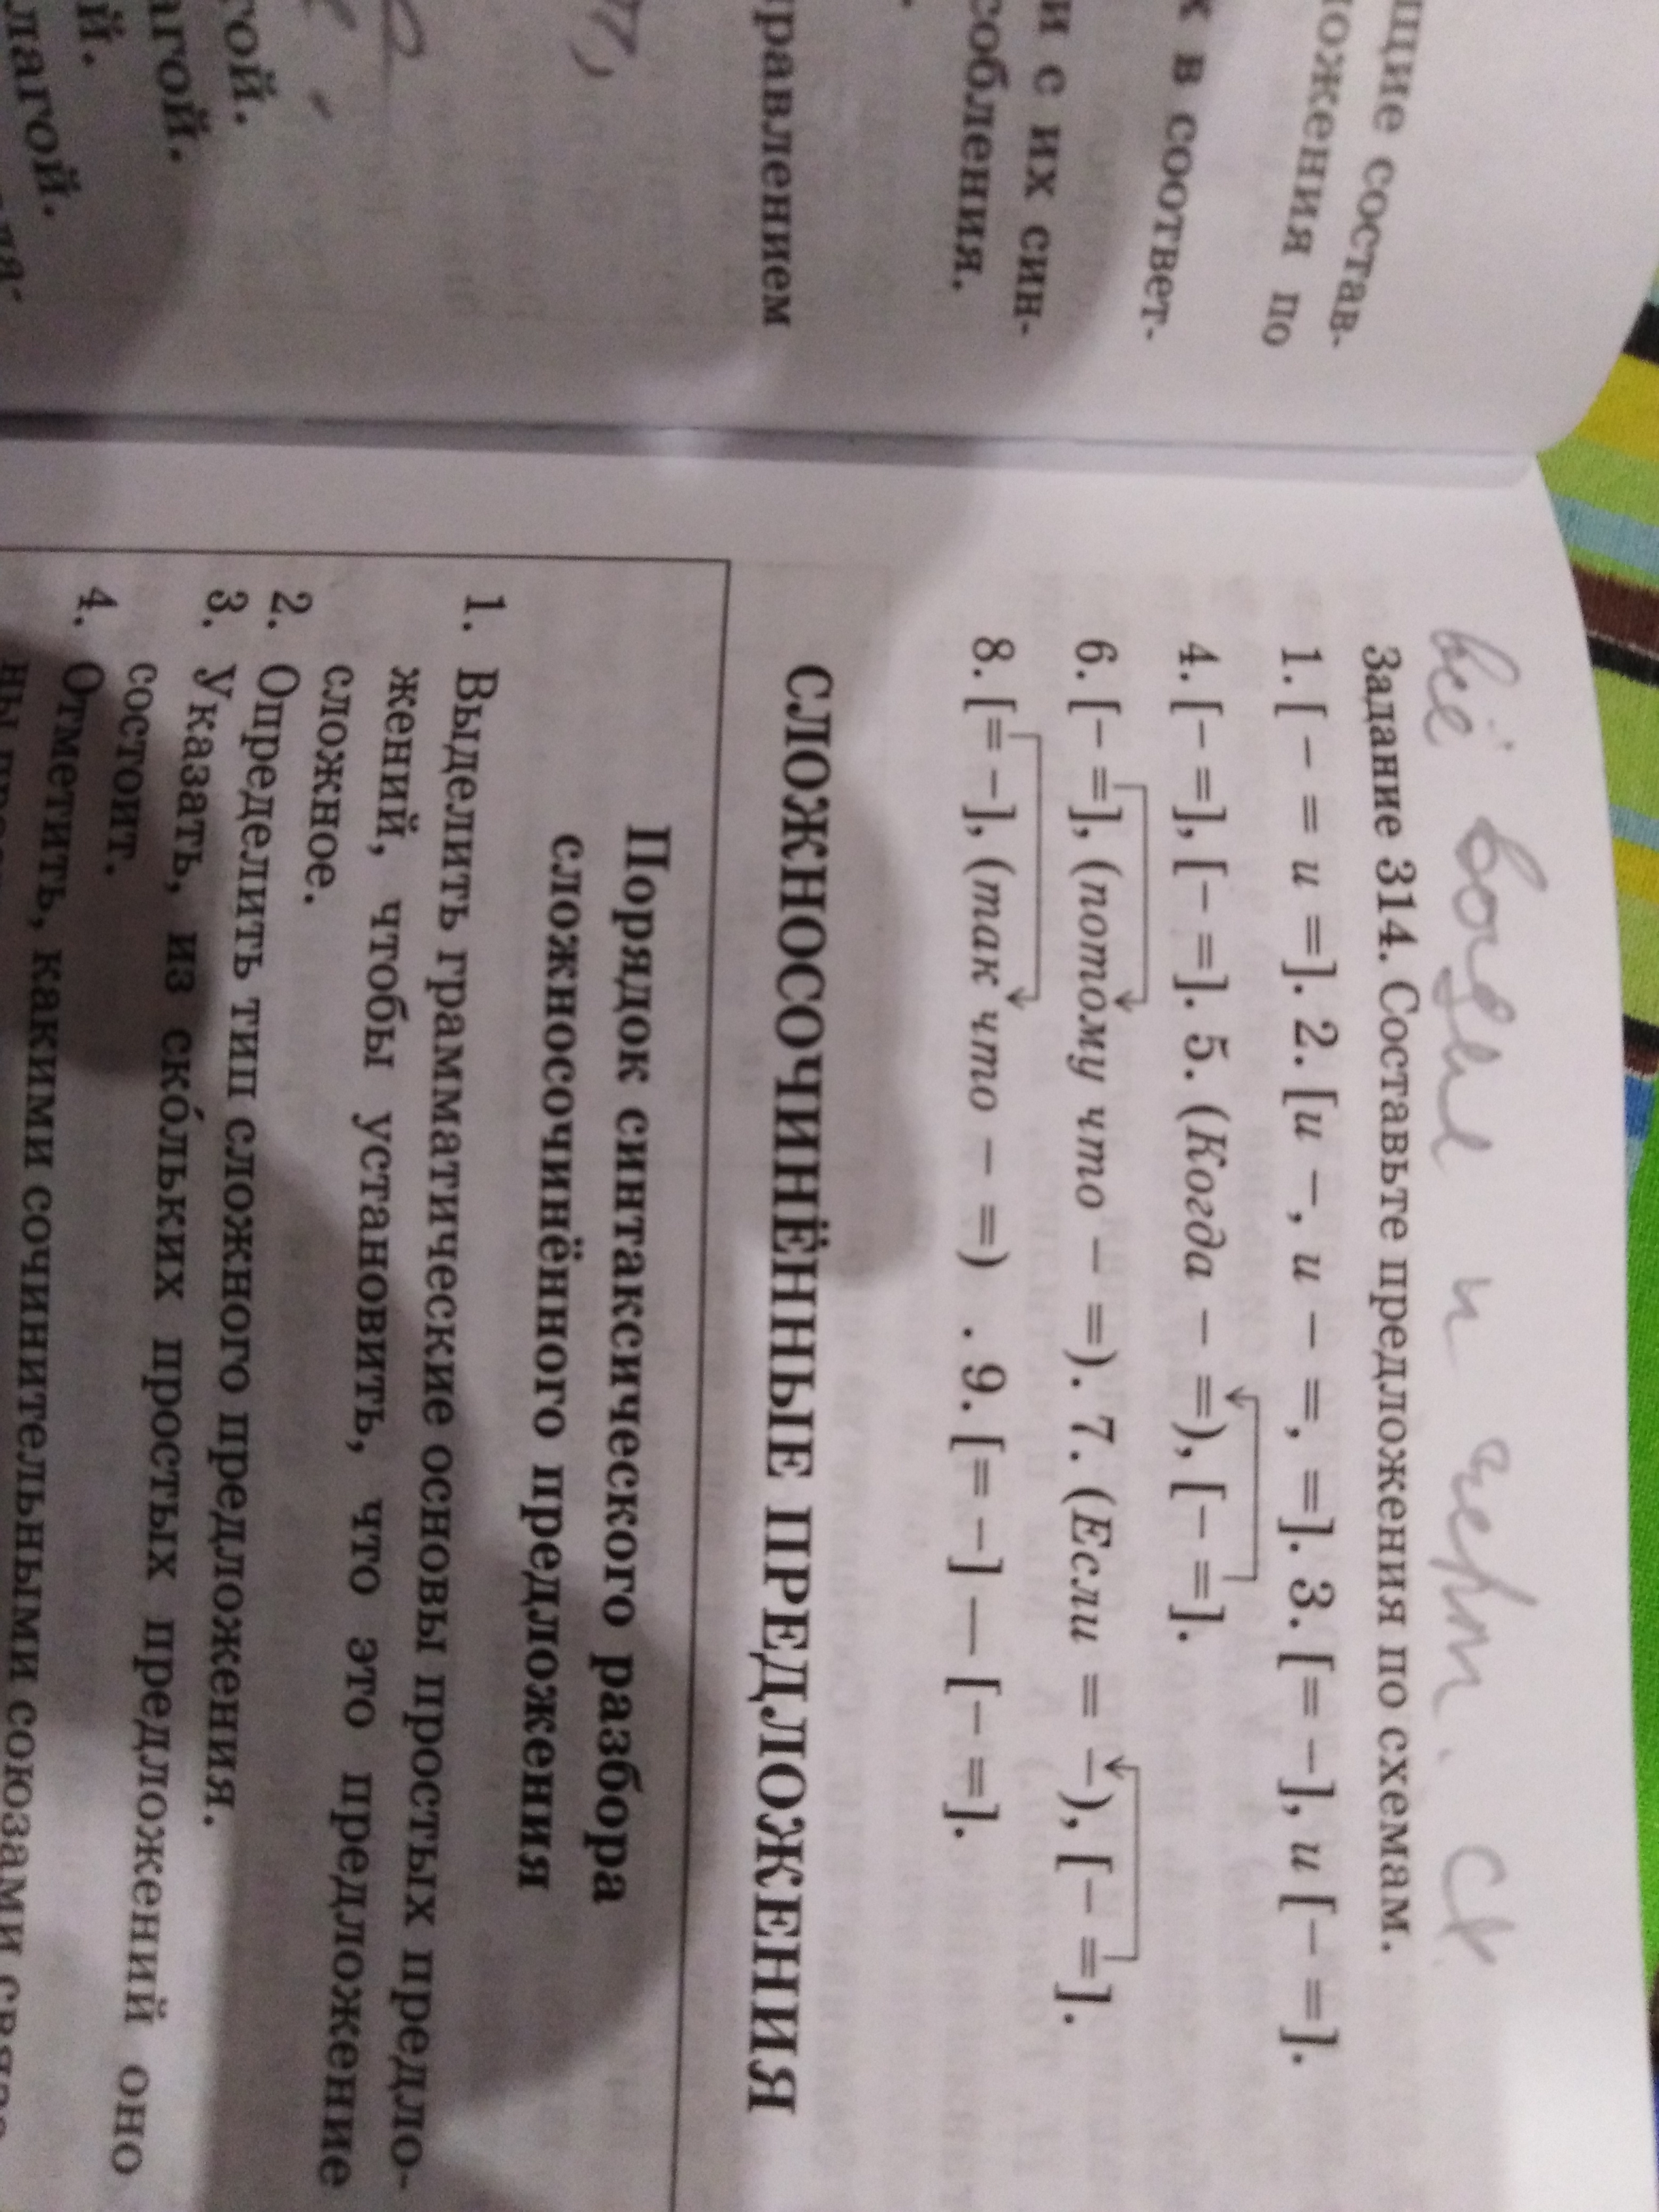 щие состав-
ложения по
х в соответ-
и с их син-
собления.
равлением
гой.
агой.
й.
лагой.
всё и черт. сх
Задание 314. Составьте предложения по схемам.
1. [ – = и =]. 2. [и –, и – =, =]. 3. [= –], и [– =].
4. [– =], [– =]. 5. (Когда – =), [– =].
6. [– =], (потому что – =). 7. (Если = –), [– =].
8. [= –], (так что – =) . 9. [= –] — [– =].
СЛОЖНОСОЧИНЁННЫЕ ПРЕДЛОЖЕНИЯ
Порядок синтаксического разбора
сложносочинённого предложения
1. Выделить грамматические основы простых предло-
жений, чтобы установить, что это предложение
сложное.
2. Определить тип сложного предложения.
3. Указать, из ско́льких простых предложений оно
состоит.
4. Отметить, какими сочинительными союзами